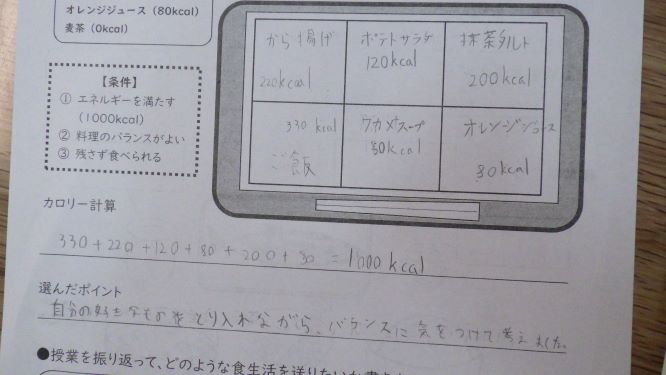 オレンジジュース（80kcal）
麦茶（0kcal）
【条件】
① エネルギーを満たす
（1000kcal）
② 料理のバランスがよい
③ 残さず食べられる
から揚げ
220kcal
ポテトサラダ
120kcal
抹茶タルト
200kcal
330 kcal
ご飯
ワカメスープ
50kcal
オレンジジュース
80kcal
カロリー計算
330+220+120+80+200+80=1000kcal
選んだポイント
自分の好きなものをとり入れながら、バランスに気をつけて考えました。
●授業を振り返って、どのような食生活を送りたいか